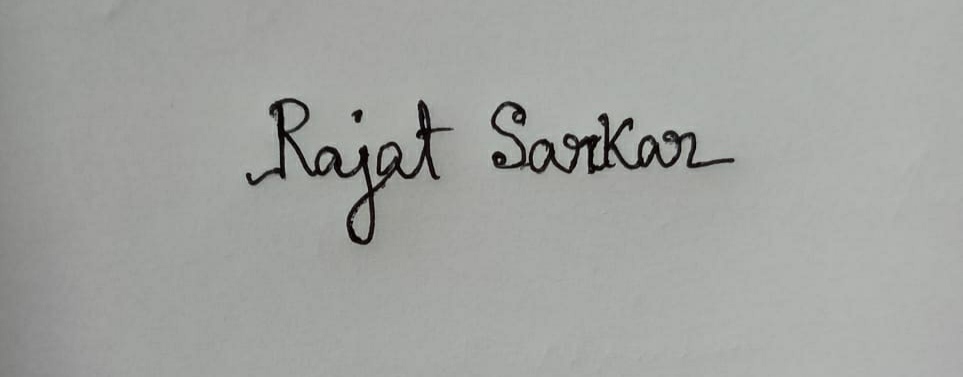 Rajat Sarkar